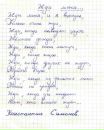 Жди меня...
Жди меня, и я вернусь,
Только очень жди,
Жди, когда наводят грусть
Желтые дожди,
Жди, когда снега метут,
Жди, когда жара,
Жди, когда других не ждут,
Позабыв вчера.
Жди, когда из дальних мест
Писем не придет,
Жди, когда уж надоест
Всем, кто вместе ждет.
Константин Симонов